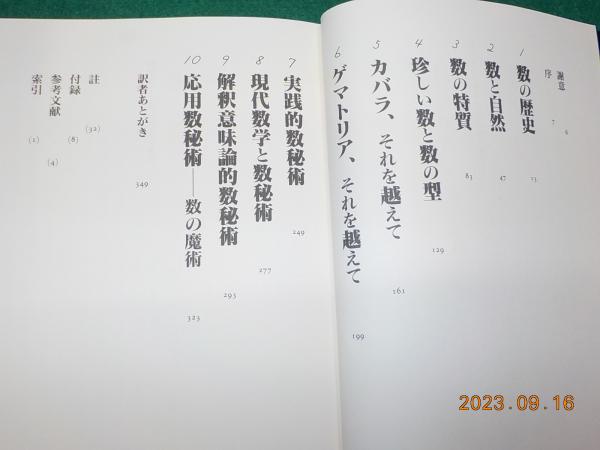 謝意 6
序 7
1 数の歴史 13
2 数と自然 47
3 数の特質 83
4 珍しい数と数の型 129
5 カバラ、それを越えて 161
6 ゲマトリア、それを越えて 199
7 実践的数秘術 249
8 現代数学と数秘術 277
9 解釈意味論的数秘術 293
10 応用数秘術——数の魔術 323
訳者あとがき 349
註 (32)
付録 (8)
参考文献 (4)
索引 (1)
2023.09.16